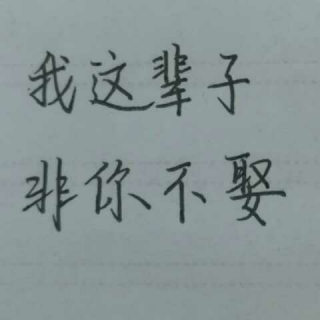 我这辈子
非你不娶